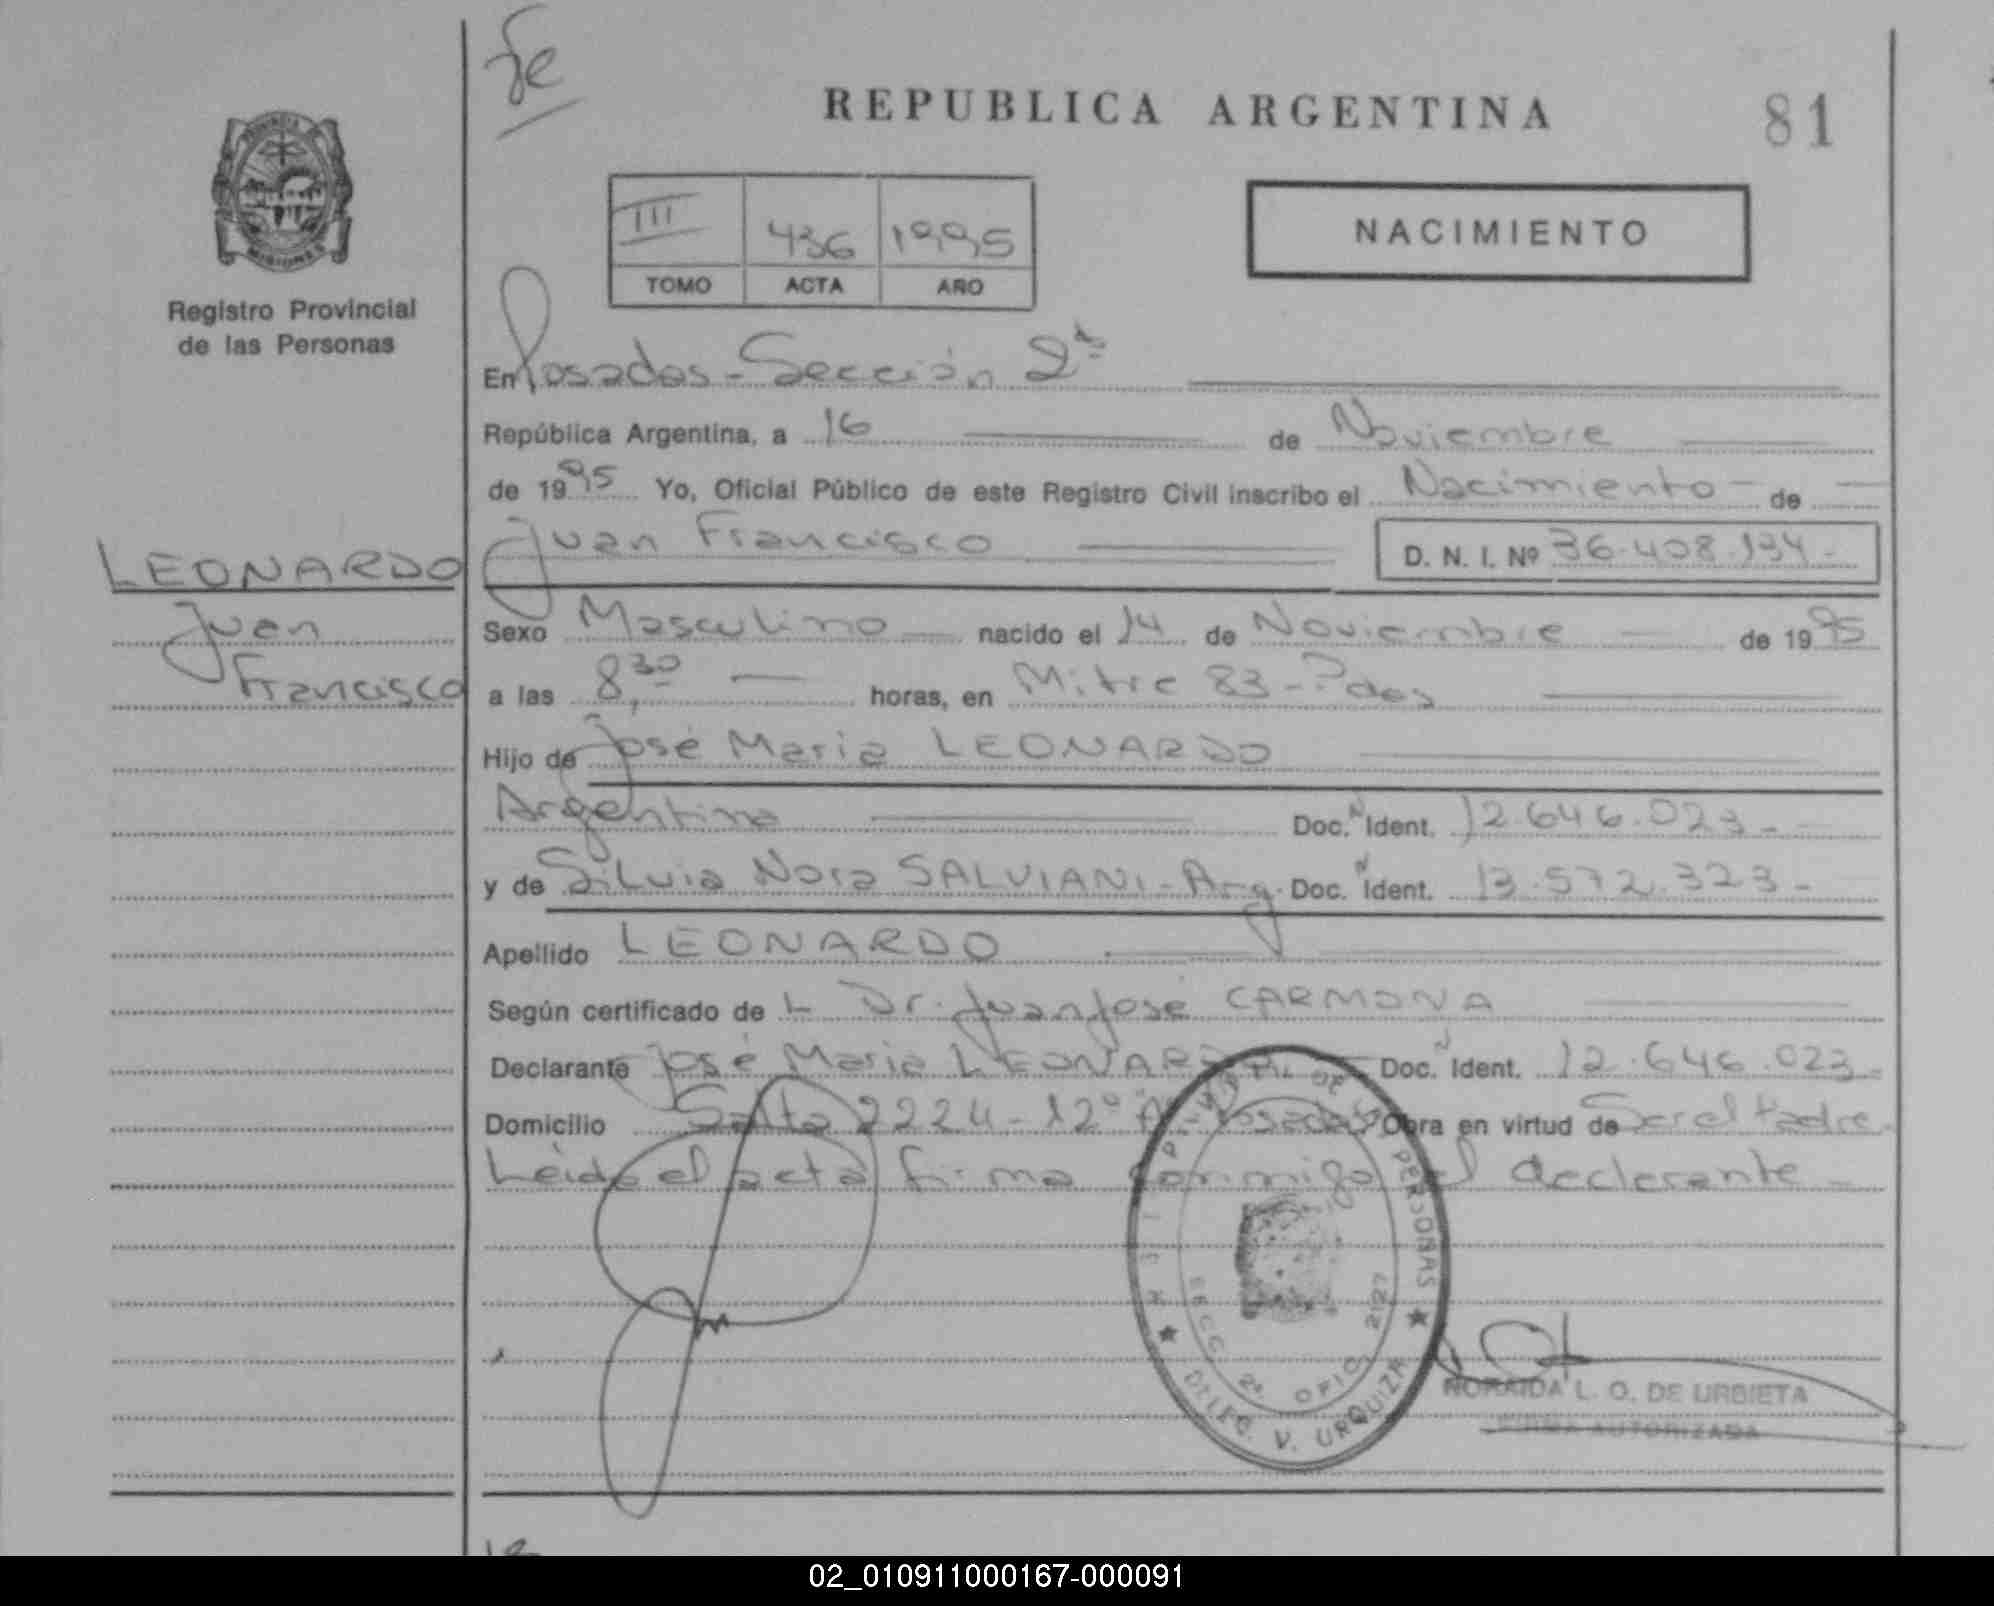 fe
REPUBLICA ARGENTINA
81
PROVINCIA DE
MISIONES
Registro Provincial
de las Personas
III 436 1995
TOMO ACTA AÑO
NACIMIENTO
En Posadas - Sección 2ª
República Argentina, a 16 de Noviembre
de 1995 Yo, Oficial Público de este Registro Civil inscribo el Nacimiento - de
LEONARDO
Juan
Francisco
Juan Francisco
D. N. I. Nº 36.408.134.-
Sexo Masculino nacido el 14 de Noviembre de 1995
a las 8,30 horas, en Mitre 83 - Pdas
Hijo de José Maria LEONARDO
Argentina Doc. N Ident. 12.646.023.-
y de Silvia Nora SALVIANI - Arg. Doc. N Ident. 13.572.323.-
Apellido LEONARDO
Según certificado de L Dr. Juan José CARMONA
Declarante José Maria LEONARDO Doc. N Ident. 12.646.023.-
Domicilio Salta 2224 - 12º A - Posadas Obra en virtud de Ser el Padre.
Leida el acta firma conmigo el declarante -
DE PERSONAS
SECC. 2ª OFIC. 2127
DELEG. V. URQUIZA
NORAIDA L. O. DE URBIETA
FIRMA AUTORIZADA
02_010911000167-000091